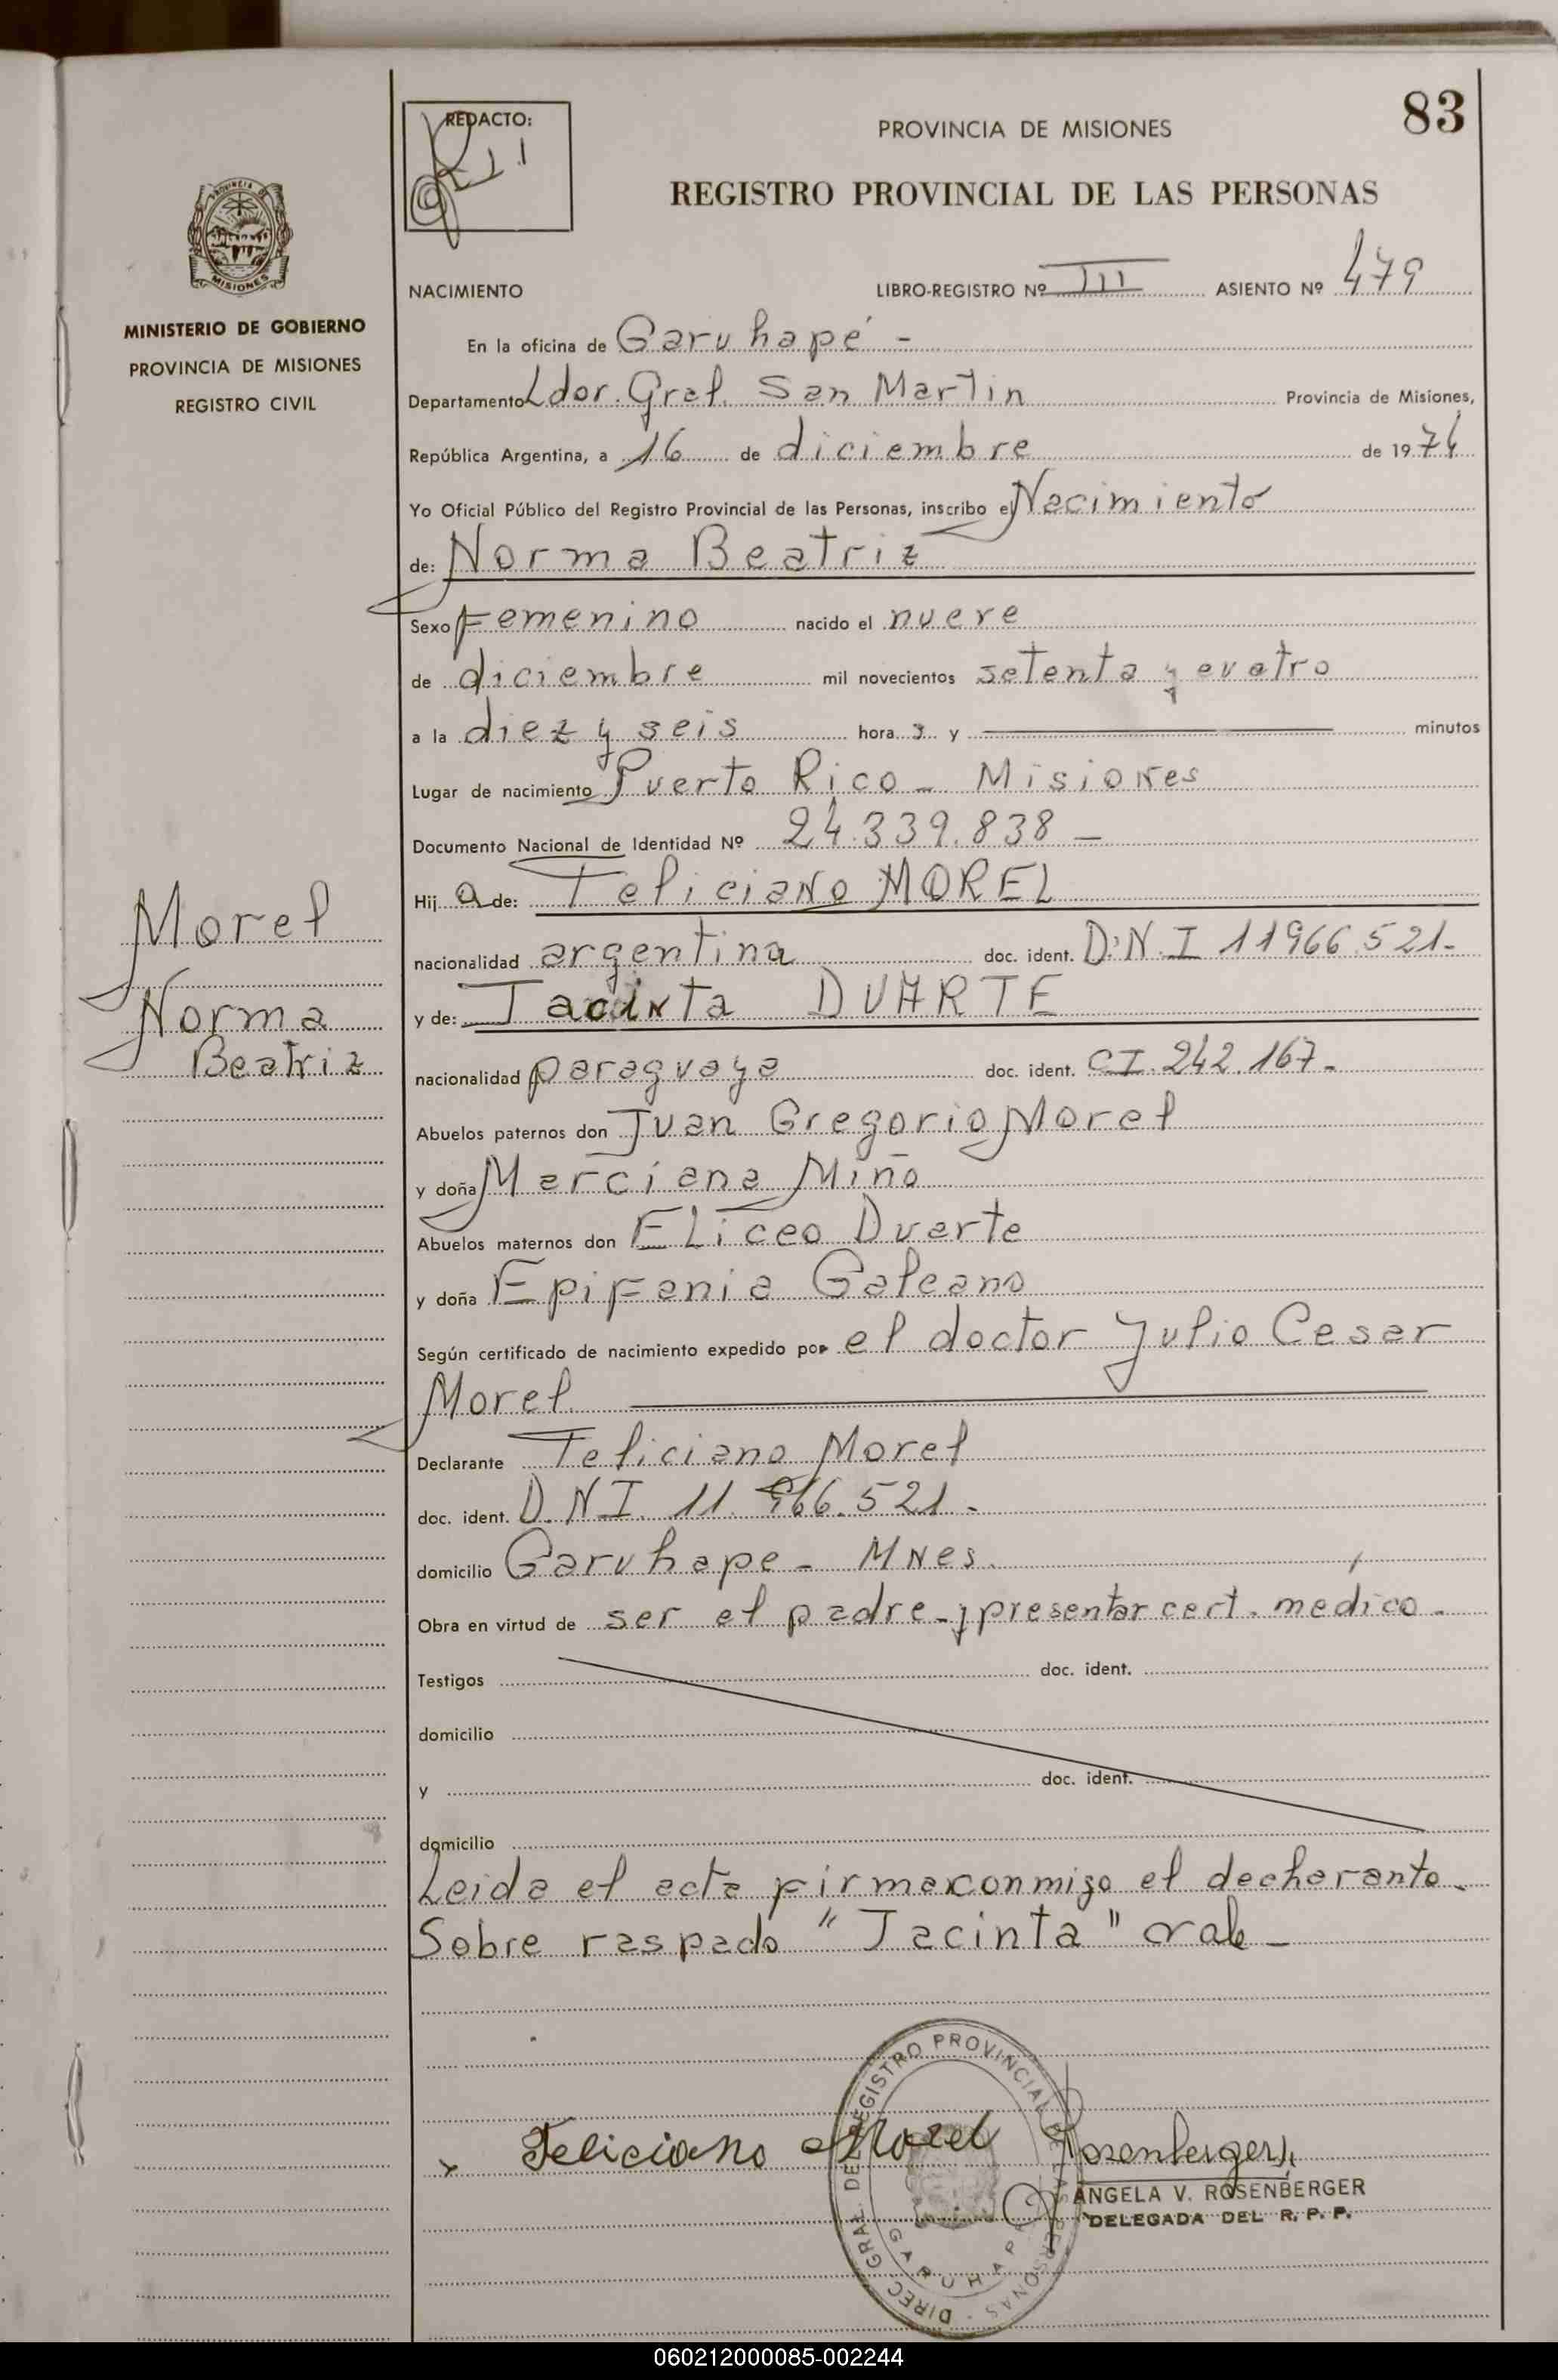 83
REDACTO:
PROVINCIA DE MISIONES
REGISTRO PROVINCIAL DE LAS PERSONAS
PROVINCIA DE
MISIONES
MINISTERIO DE GOBIERNO
PROVINCIA DE MISIONES
REGISTRO CIVIL
NACIMIENTO LIBRO-REGISTRO Nº III ASIENTO Nº 479
En la oficina de Garuhapé -
Departamento Ldor. Gral. San Martin Provincia de Misiones,
República Argentina, a 16 de diciembre de 1974
Yo Oficial Público del Registro Provincial de las Personas, inscribo el Nacimiento
de: Norma Beatriz
Sexo Femenino nacido el nueve
de diciembre mil novecientos setenta y cuatro
a la diez y seis hora s y minutos
Lugar de nacimiento Puerto Rico - Misiones
Documento Nacional de Identidad Nº 24.339.838 -
Hij a de: Feliciano MOREL
nacionalidad argentina doc. ident. D.N.I 11966.521.-
y de: Jacinta DUARTE
nacionalidad paraguaya doc. ident. CI. 242.167.-
Abuelos paternos don Juan Gregorio Morel
y doña Marciana Miño
Abuelos maternos don Eliceo Duarte
y doña Epifania Galeano
Según certificado de nacimiento expedido por el doctor Julio Cesar
Morel
Declarante Feliciano Morel
doc. ident. D.N.I. 11.966.521.-
domicilio Garuhape - Mnes.
Obra en virtud de ser el padre - y presentar cert. médico.-
Testigos doc. ident.
domicilio
y doc. ident.
domicilio
Leida el acta firma conmigo el declarante.
Sobre raspado "Jacinta" vale -
Morel
Norma
Beatriz
Feliciano Morel
Rosenberger
ANGELA V. ROSENBERGER
DELEGADA DEL R. P. P.
DIREC. GRAL. DEL REGISTRO PROVINCIAL DE LAS PERSONAS -
GARUHAPE
060212000085-002244